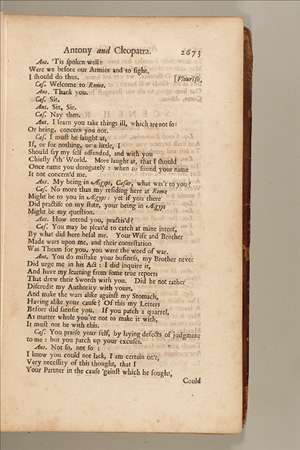 Antony and Cleopatra. 2673
Ant. 'Tis spoken well:
Were we before our Armies and to fight,
I should do thus. [Flourish,
Cæs. Welcome to Rome.
Ant. Thank you.
Cæs. Sit.
Ant. Sit, Sir.
Cæs. Nay then.
Ant. I learn you take things ill, which are not so:
Or being, concern you not.
Cæs. I must be laught at,
If, or for nothing, or a little, I
Should say my self offended, and with you
Chiefly i'th World. More laught at, that I should
Once name you derogately: when to sound your name
It not concern'd me.
Ant. My being in Ægypt, Cæsar, what was't to you?
Cæs. No more than my residing here at Rome
Might be to you in Ægypt: yet if you there
Did practise on my state, your being in Ægypt
Might be my question.
Ant. How intend you, practis'd?
Cæs. You may be pleas'd to catch at mine intent,
By what did here befal me. Your Wife and Brother
Made wars upon me, and their contestation
Was Theam for you, you were the word of war.
Ant. You do mistake your business, my Brother never
Did urge me in his Act: I did inquire it,
And have my learning from some true reports
That drew their Swords with you. Did he not rather
Discredit my Authority with yours,
And make the wars alike against my Stomach,
Having alike your cause? Of this my Letters
Before did satisfie you. If you patch a quarrel,
As matter whole you've not to make it with,
It must not be with this.
Cæs. You praise your self, by laying defects of judgment
to me: but you patch up your excuses.
Ant. Not so, not so:
I know you could not lack, I am certain on't,
Very necessity of this thought, that I
Your Partner in the cause 'gainst which he fought,
Could